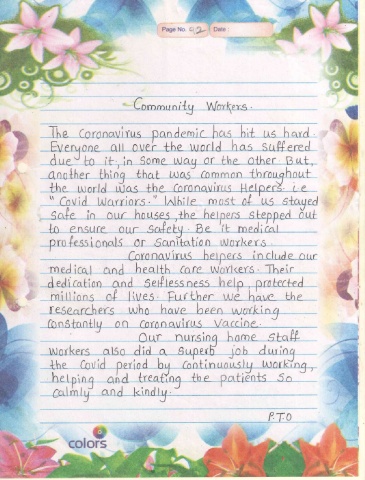 Page No. 02 Date:
Community Workers.
The Coronavirus pandemic has hit us hard.
Everyone all over the world has suffered
due to it, in some way or the other. But,
another thing that was common throughout
the world was the Coronavirus Helpers i.e
"Covid Warriors." While most of us stayed
safe in our houses, the helpers stepped out
to ensure our safety. Be it medical
professionals or sanitation workers.
Coronavirus helpers include our
medical and health care workers. Their
dedication and selflessness help, protected
millions of lives. Further we have the
researchers who have been working
constantly on coronavirus vaccine.
Our nursing home staff
workers also did a superb job during
the Covid period by continuously working,
helping and treating the patients so
calmly and kindly.
P.T.O
colors